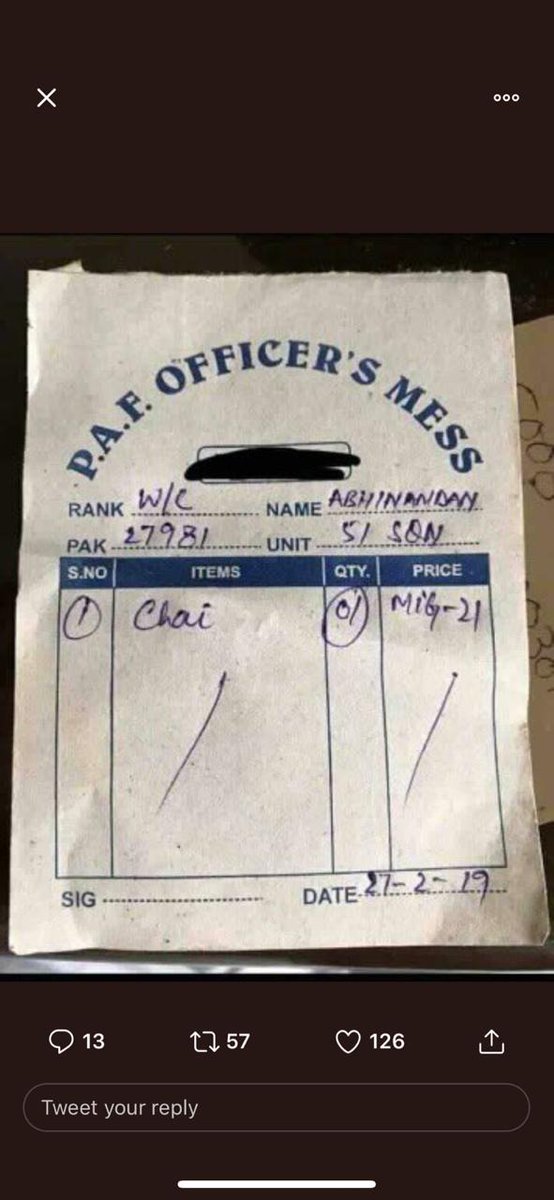 P.A.F. OFFICER'S MESS
RANK W/C NAME ABHINANDAN
PAK 27981 UNIT 51 SQN
S.NO ITEMS QTY. PRICE
1 Chai 01 MiG-21
SIG DATE 27-2-19
13 57 126
Tweet your reply